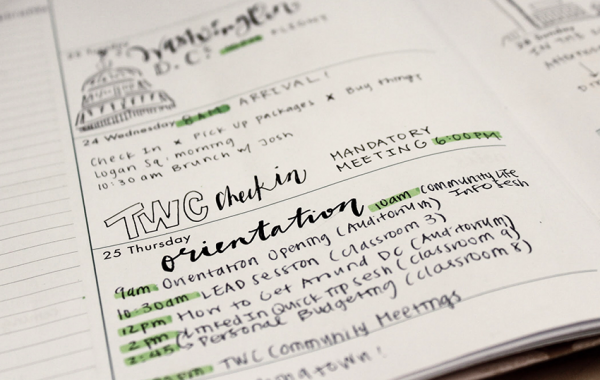 Washington
D.C.
24 Wednesday 8AM ARRIVAL!
Check In x Pick up packages x Buy things
Logan Sq. morning
10:30am Brunch w/ Josh
MANDATORY
MEETING 6:00PM
TWC check in
25 Thursday
orientation
10am Community Life
Info Sesh
9am Orientation Opening (Auditorium)
10:30am LEAD SESSION (Classroom 3)
12pm How to Get Around DC (Auditorium)
2pm LinkedIn Quick Tip Sesh (Classroom 9)
2:45 Personal Budgeting (Classroom 8)
pm TWC Community Meetings
IN THE